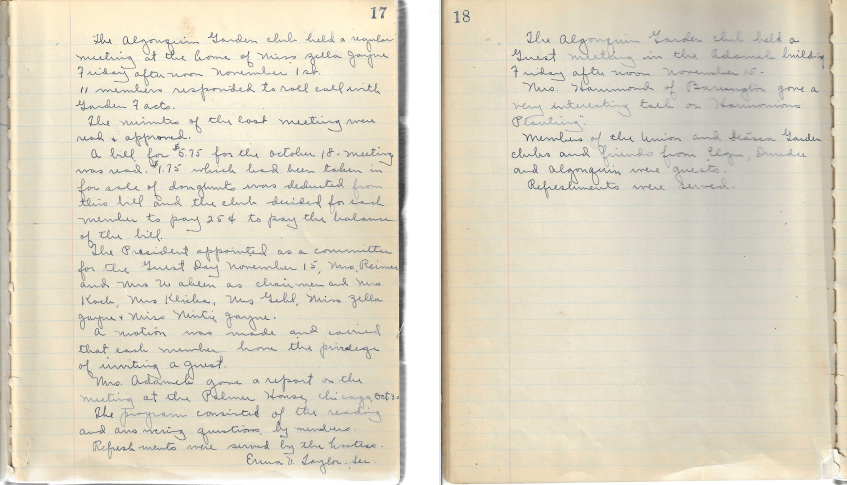 17
The Algonquin Garden club held a regular
meeting at the home of Miss Zella Gayne
Friday afternoon November 1st.
11 members responded to roll call with
Garden Facts.
The minutes of the last meeting were
read & approved.
A bill for $5.75 for the October 18 - meeting
was read. $1.75 which had been taken in
for sale of doughnuts was deducted from
this bill and the club decided for each
member to pay 25¢ to pay the balance
of the bill.
The President appointed as a committee
for the Guest Day November 15, Mrs. Reimer
and Mrs as chairmen and Mrs
Koch, Mrs Klicka, Mrs Gehl, Miss Zella
Gayne & Miss Mintie Gayne.
A motion was made and carried
that each member have the privilege
of inviting a guest.
Mrs. Adamek gave a report on the
meeting at the Palmer House, Chicago, Oct 30
The program consisted of the reading
and answering questions, by members.
Refreshments were served by the hostess.
Erma V. Taylor, Sec.
18
The Algonquin Garden club held a
Guest meeting in the Adamek building
Friday afternoon November 15 -
Mrs. Hammond of Barrington gave a
very interesting talk on Harmonious
Planting.
Members of the Union and Garden
clubs and friends from Elgin, Dundee
and Algonquin were guests.
Refreshments were served.